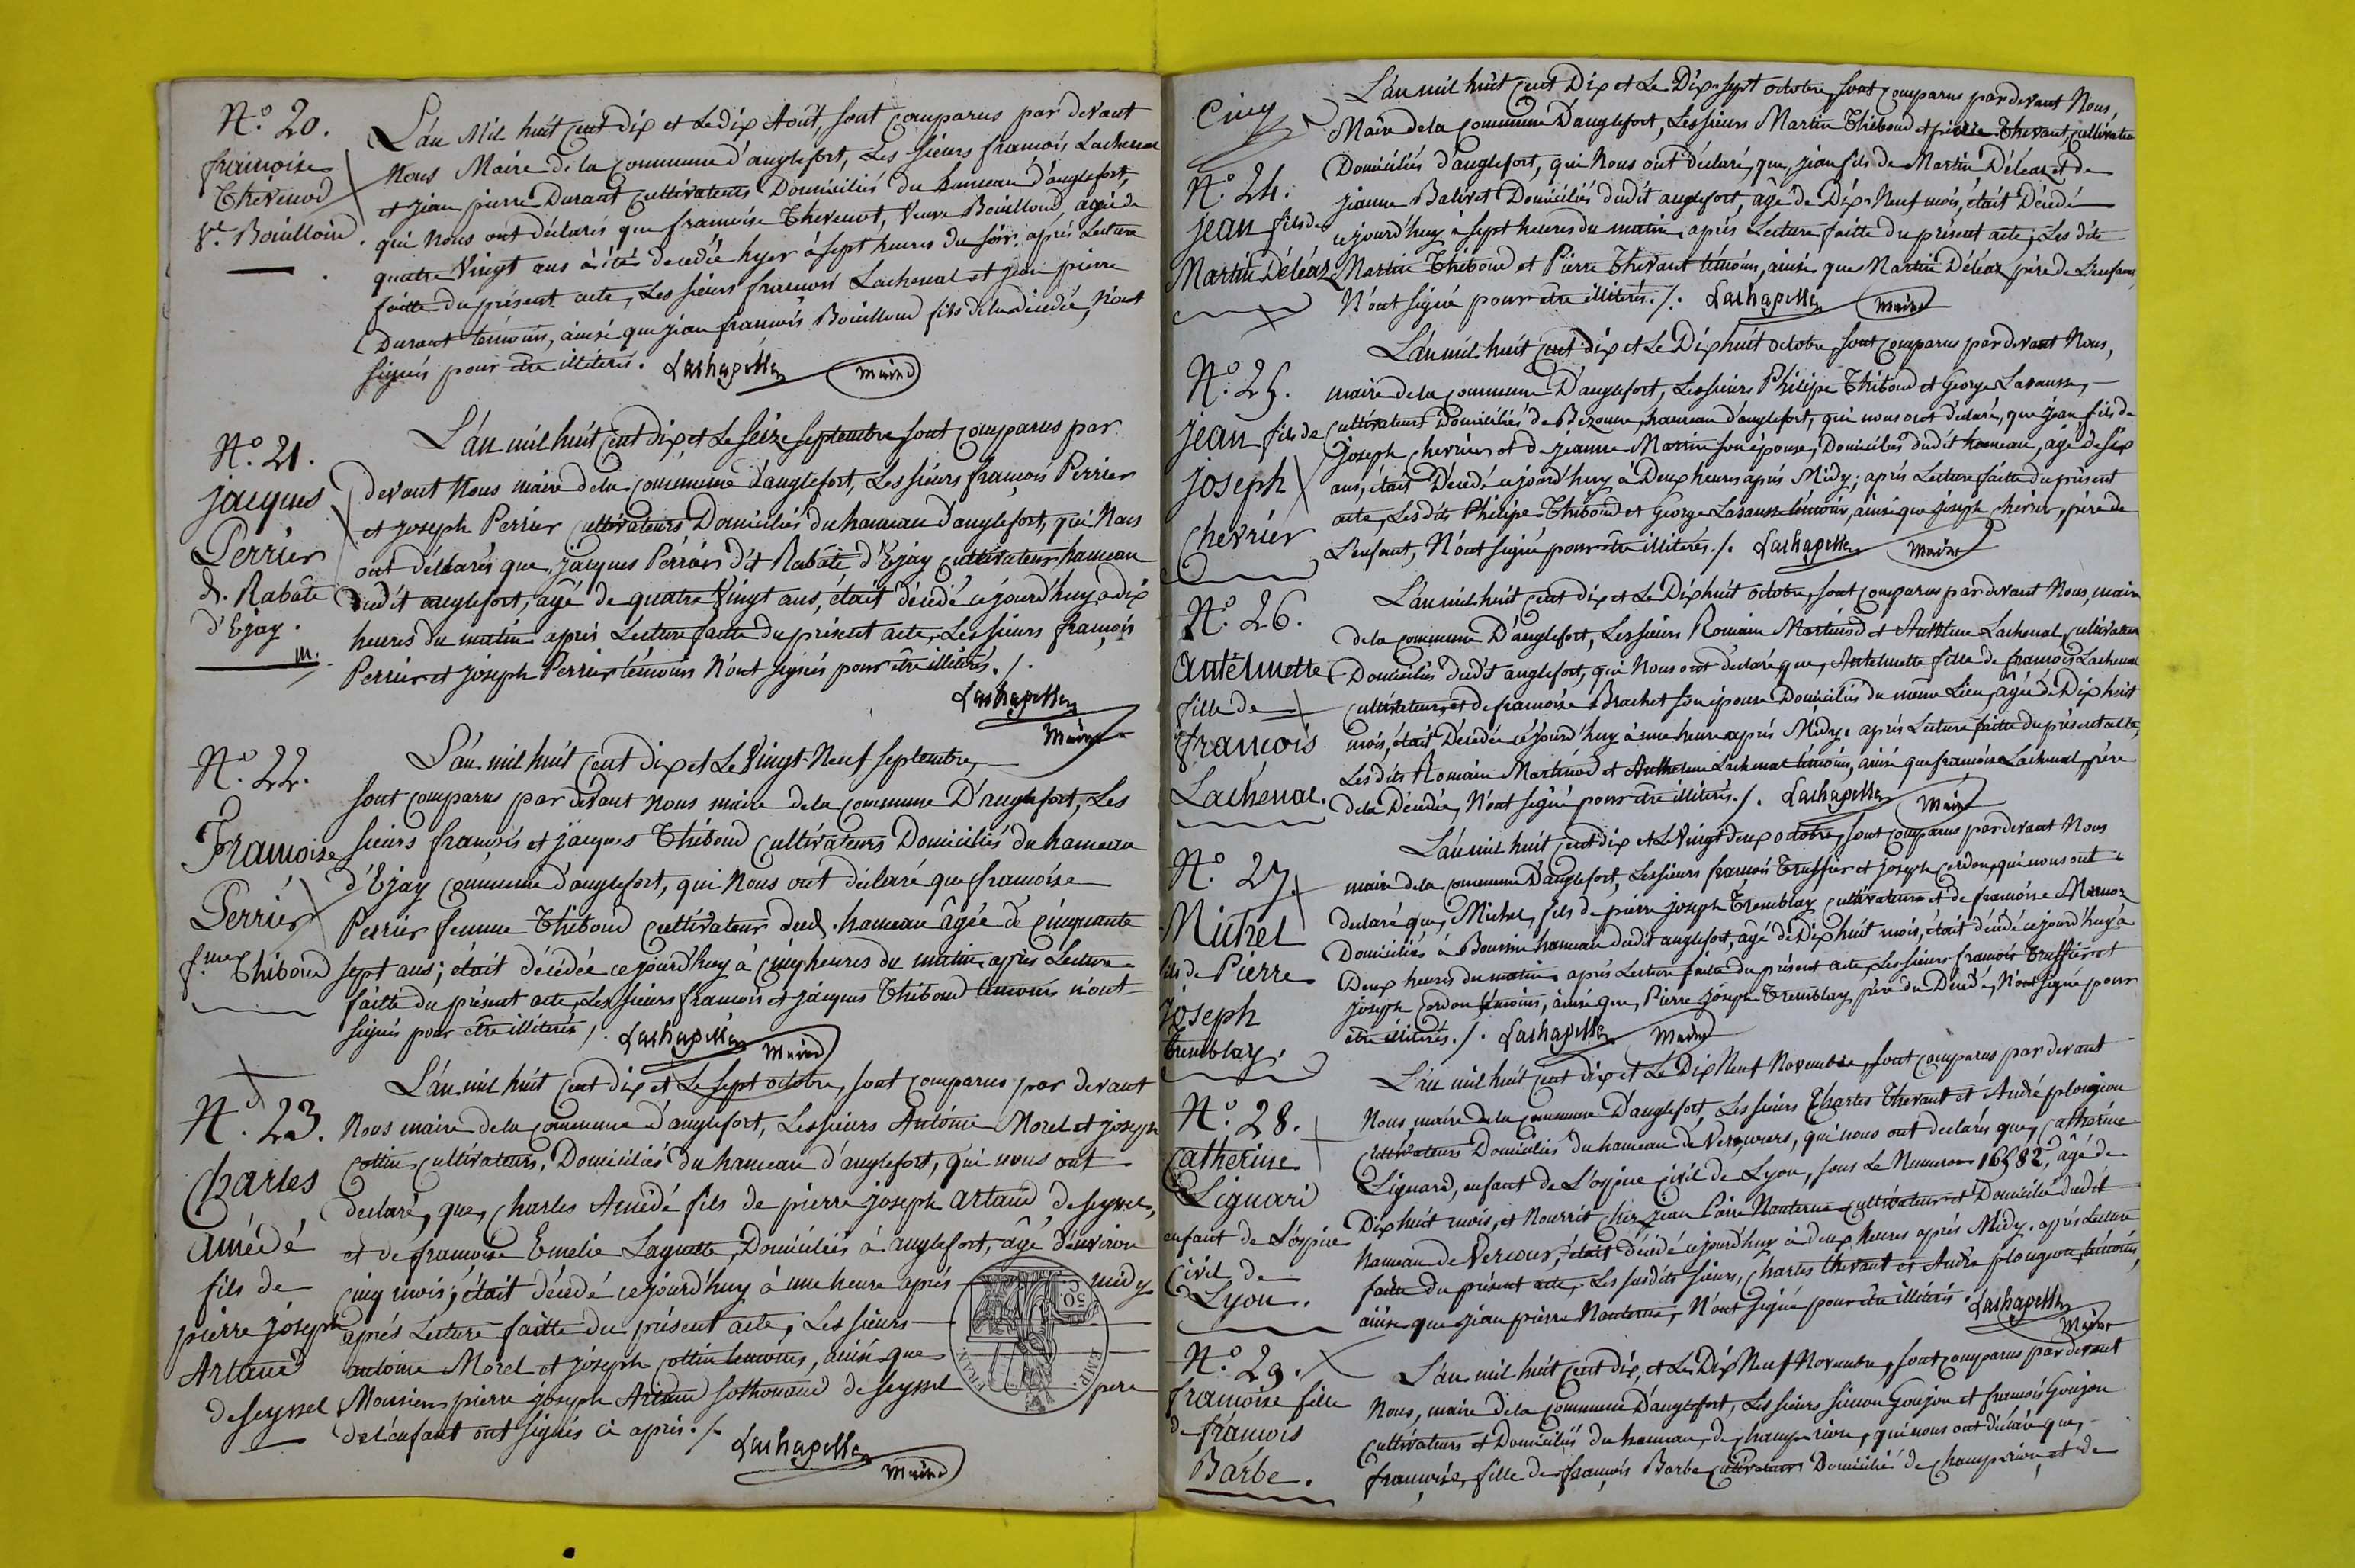 N.° 20.
françoise
Thevenod
V.e Bouilloud.
L'an Mil huit Cent dix et Le dix Août, sont Comparus par devant
Nous Maire de la Commune d'anglefort, Les sieurs françois Lachenal
et jean pierre Durant Cultivateurs Domiciliés du hameau d'anglefort,
qui Nous ont déclarés que françoise Thevenot, Veuve Bouilloud agée de
quatre Vingt ans à été decedée hyer à sept heures du soir. après Lecture
faitte du présent acte, Les sieurs françois Lachenal et jean pierre
Durant temoins, ainsi que jean françois Bouilloud fils de la décedée, N'ont
signés pour être illiterés. Lachapelle Maire
N.° 21.
jacques
Perrier
d. Rabâte
d'Ejay.
m.
L'an mil huit Cent dix, et Le seize septembre sont Comparus par
devant Nous maire de la Commune d'anglefort, Les sieurs françois Perrier
et joseph Perrier Cultivateurs Domiciliés du hameau d'anglefort, qui Nous
ont déclarés que, jacques Perrier dit Rabâte d'Ejay Cultivateur hameau
dudit anglefort, âgé de quatre Vingt ans, était décedé ce jourd'huy à dix
heures du matin. après Lecture faitte du présent acte, Les sieurs françois
Perrier et joseph Perrier témoins N'ont signés pour être illiterés. /.
Lachapelle
Maire
N.° 22.
Françoise
Perrier
f.me Thiboud
L'an mil huit Cent dix et Le Vingt-Neuf septembre,
sont Comparus par devant nous maire de la Commune D'anglefort, Les
sieurs françois et jacques Thiboud Cultivateurs Domiciliés du hameau
d'Ejay Commune d'anglefort, qui Nous ont déclaré que françoise
Perrier femme Thiboud Cultivateur dud. hameau âgée de Cinquante
sept ans; était décédée ce jourd'huy à Cinq heures du matin. après Lecture
faitte du présent acte, Les sieurs françois et jacques Thiboud temoins n'ont
signés pour être illiterés /. Lachapelle Maire
N.° 23.
Charles
Amédé
fils de
pierre joseph
Artaud
de seyssel
L'an mil huit Cent dix et Le sept octobre, sont Comparus par devant
Nous maire de la Commune d'anglefort, Les sieurs Antoine Morel et joseph
Cottin Cultivateurs, Domiciliés du hameau d'anglefort, qui nous ont
declaré, que, Charles Amédé fils de pierre joseph artaud de seyssel,
et de françoise Emelie Laguette, Domiciliés à anglefort, âgé d'environ
Cinq mois, était décedé ce jourd'huy à une heure après midy
après Lecture faitte du présent acte, Les sieurs
antoine Morel et joseph Cottin temoins, ainsi que
Monsieur pierre joseph Artaud de seyssel pere
de l'enfant ont signés ci après. /.
Lachapelle Maire
50 C.
FRAN.
EMP.
Cinq
N.° 24.
jean fils de
Martin Déléaz
L'an mil huit Cent Dix et Le Dix-sept octobre, sont Comparus par devant Nous,
Maire de la Commune D'anglefort, Les sieurs Martin Thiboud et pierre Thevant, Cultivateurs
Domiciliés d'anglefort, qui Nous ont déclaré, que, jean fils de Martin Déléaz et de
jeanne Balivet Domiciliés dudit anglefort, âgé de Dix-Neuf mois, était Décedé
ce jourd'huy à sept heures du matin. après Lecture faitte du présent acte; Les dits
Martin Thiboud et Pierre Thevant témoins, ainsi que Martin Déléaz père de L'enfant,
N'ont signé pour être illiterés. /. Lachapelle Maire
N.° 25.
jean fils de
joseph
Chevrier
L'an mil huit Cent dix et Le Dixhuit octobre, sont Comparus par devant Nous,
maire de la Commune D'anglefort, Les sieurs Philipe Thiboud et George Lavausse,
Cultivateurs Domiciliés de Bezonne, hameau d'anglefort, qui nous ont déclaré, que jean fils de
joseph Chevrier et de jeanne Martin son épouse, Domiciliés dudit hameau, âgé de six
ans, était Décedé ce jourd'huy à Deux heures après Midy; après Lecture faitte du présent
acte, Les dits Philipe Thiboud et George Lasausse témoins, ainsi que joseph Chevrier, père de
L'enfant, N'ont signé pour être illiterés. /. Lachapelle Maire
N.° 26.
Antelmette
fille de
françois
Lachenal.
L'an mil huit Cent dix et Le Dixhuit octobre, sont Comparus par devant Nous, maire
de la Commune D'anglefort, Les sieurs Romain Martinod et Anthelme Lachenal, Cultivateurs
Domiciliés dudit anglefort, qui Nous ont déclaré que, Antelmette fille de françois Lachenal
Cultivateur, et de françoise Brachet son épouse Domiciliés du même Lieu, âgée de Dix huit
mois, était Décedée ce jourd'huy à une heure après Midy. après Lecture faitte du présent acte,
Les dits Romain Martinod et Anthelme Lachenal témoins, ainsi que françois Lachenal, père
de la Décedée, N'ont signé pour être illiterés. /. Lachapelle Maire
N.° 27
Michel
fils de Pierre
joseph
Tremblay.
L'an mil huit Cent dix et Le Vingt deux octobre, sont Comparus par devant Nous
maire de la Commune D'anglefort, Les sieurs françois Truffier et joseph Cordon, qui nous ont
declaré que, Michel, fils de pierre joseph Tremblay Cultivateur et de françoise
Domiciliés à hameau dudit anglefort, âgé de Dix huit mois, était décedé ce jourd'huy à
Deux heures du matin. après Lecture faitte du présent acte, Les sieurs françois Truffier et
joseph Cordon témoins, ainsi que, Pierre joseph Tremblay, père du Décedé, N'ont signé pour
être illiterés. /. Lachapelle Maire
N.° 28.
Catherine
Liguari
enfant de L'ospice
Civil de
Lyon.
L'an mil huit Cent dix et Le Dix Neuf Novembre, sont Comparus par devant
Nous, maire de la Commune D'anglefort, Les sieurs Charles Thevant et André plougeon
Cultivateurs Domiciliés du hameau de Vercours, qui nous ont declarés que, Catherine
Liguard, enfant de L'ospice Civil de Lyon, sous Le Numero 16582, âgé de
Dix huit mois, et Nourrit chez jean Nanterne Cultivateur et Domicilié dudit
hameau de Vercour, était décedé ce jourd'huy à deux heures après Midy. après Lecture
faitte du présent acte, Les susdits sieurs, Charles thevant et André plougeon, témoins,
ainsi que jean pierre Nanterne, N'ont signé pour être illiterés. Lachapelle
Maire
N.° 29.
françoise fille
de françois
Barbe.
L'an mil huit Cent dix, et Le Dix Neuf Novembre, sont Comparus par devant
Nous, maire de la Commune D'anglefort, Les sieurs simeon Goujon et françois Goujon
Cultivateurs et Domiciliés du hameau, de Champrion, qui nous ont déclaré que,
françoise, fille de françois Barbe Cultivateur Domicilié de Champrion, et de